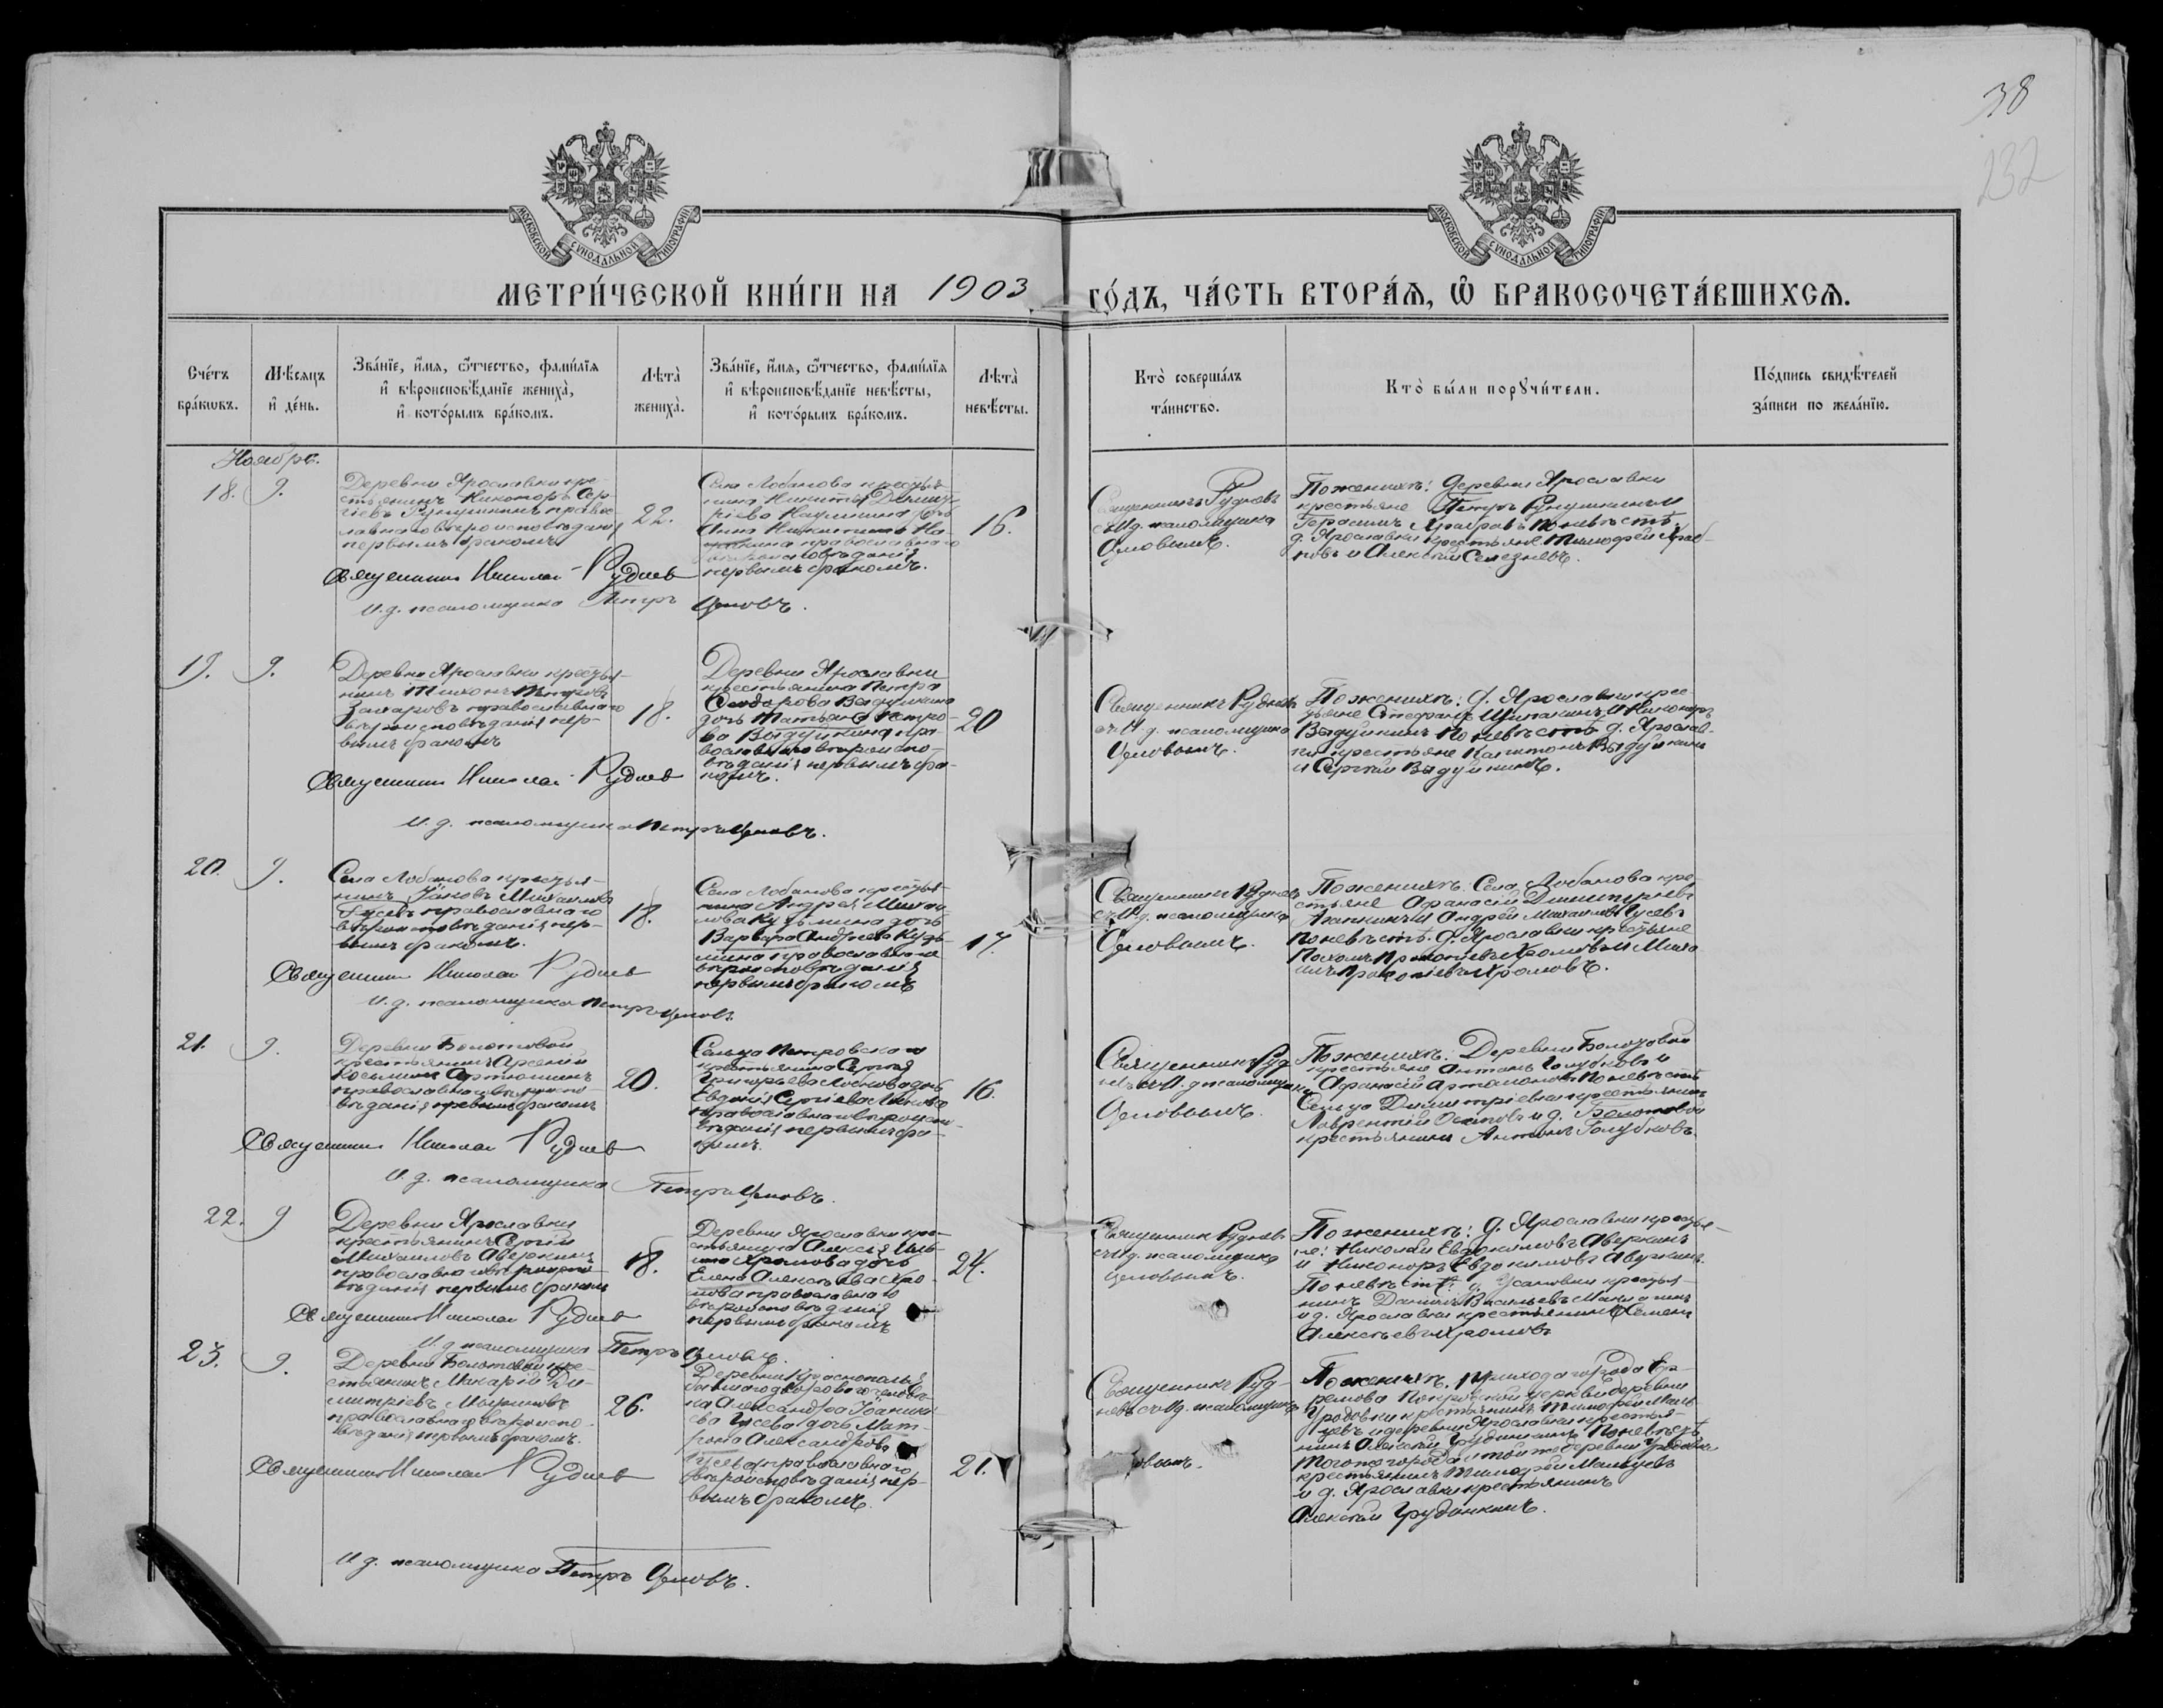 38
232
МОСКОВСКОЙ СѴНОДАЛЬНОЙ ТИПОГРАФІИ
МОСКОВСКОЙ СѴНОДАЛЬНОЙ ТИПОГРАФІИ
МЕТРИ́ЧЕСКОЙ КНИ́ГИ НА 1903 ГО́ДЪ, ЧА́СТЬ ВТОРА́Ѧ, Ѽ БРАКОСОЧЕТА́ВШИХСѦ.
Сче́тъ
бра́кѡвъ.
Мѣ́сѧцъ
и҆ де́нь.
Зва́нїе, и҆́мѧ, ѻ҆́тчество, фами́лїѧ
и҆ вѣроисповѣ́данїе жениха̀,
и҆ кото́рымъ бра́комъ.
Лѣта̀
жениха̀.
Зва́нїе, и҆́мѧ, ѻ҆́тчество, фами́лїѧ
и҆ вѣроисповѣ́данїе невѣ́сты,
и҆ кото́рымъ бра́комъ.
Лѣта̀
невѣ́сты.
Кто̀ соверша́лъ
та́инство.
Кто̀ бы́ли порꙋчи́тели.
По́дпись свидѣ́телей
за́писи по жела́нїю.
Ноябрь.
18.
9.
Деревни Ярославки кре-
стьянинъ Никоноръ Сер-
гіевъ православ-
наго вѣроисповѣданія
первымъ бракомъ
22.
Села Лобанова крестья-
нина Никиты Димит-
ріева Наумкина дочь
Анна Никитина На-
умкина православнаго
вѣроисповѣданія
первымъ бракомъ.
16.
Священникъ Рудневъ
съ И.д. псаломщика
По женихѣ: деревни Ярославки
крестьяне Петръ и
Герасимъ Храповъ; по невѣстѣ:
д. Ярославки крестьяне Тимофей
и Алексѣй Селезневъ.
Священникъ Николай Рудневъ
И.д. псаломщика Петръ
19.
9.
Деревни Ярославки крестья-
нинъ Тихонъ Петровъ
Захаровъ православнаго
вѣроисповѣданія пер-
вымъ бракомъ
18.
Деревни Ярославки
крестьянина Петра
Сидорова Вадушкина
дочь Татьяна Петро-
ва Вадушкина пра-
вославнаго вѣроиспо-
вѣданія первымъ бра-
комъ.
20
Священникъ Рудневъ
съ И.д. псаломщика
По женихѣ: д. Ярославки крес-
тьяне Стефанъ и Никоноръ
Вадушкинъ по невѣстѣ д. Ярослав-
ки крестьяне Капитонъ Вадушкинъ
и Сергѣй Вадушкинъ.
Священникъ Николай Рудневъ
И.д. псаломщика Петръ
20.
9.
Села Лобанова крестья-
нинъ Іаковъ Михаиловъ
Гусевъ православнаго
вѣроисповѣданія пер-
вымъ бракомъ.
18.
Села Лобанова крестья-
нина Андрея Михаи-
лова Кузьмина дочь
Варвара Андреева Кузь-
мина православнаго
вѣроисповѣданія
первымъ бракомъ
17.
Священникъ Рудневъ
съ И.д. псаломщика
По женихѣ: Села Лобанова кре-
стьяне Афанасій Димитріевъ
и Андрей Михаиловъ Гусевъ
по невѣстѣ: д. Ярославки крестьяне
Прокопіевъ Хромовъ и Миха-
илъ Прокопіевъ Хромовъ.
Священникъ Николай Рудневъ
И.д. псаломщика Петръ
21.
9.
Деревни Болотовой
крестьянинъ Арсеній
Косьминъ Артюшинъ
православнаго вѣроиспо-
вѣданія первымъ бракомъ
20.
Сельца Петровскаго
крестьянина Сергѣя
Григорьева дочь
Евдокія Сергѣева
православнаго вѣроиспо-
вѣданія первымъ бра-
комъ.
16.
Священникъ Руд-
невъ съ И.д. псаломщика
По женихѣ: Деревни Болотовой
крестьяне Антонъ Голубковъ и
Афанасій Артамоновъ по невѣстѣ
Сельца Димитріевки крестьянинъ
Лаврентій Осиповъ и д. Болотовой
крестьянинъ Антонъ Голубковъ.
Священникъ Николай Рудневъ
И.д. псаломщика Петръ
22.
9
Деревни Ярославки
крестьянинъ Сергѣй
Михаиловъ Аверкинъ
православнаго вѣроиспо-
вѣданія первымъ бракомъ
18.
Деревни Ярославки кре-
стьянина Алексѣя Иль-
ина Хромова дочь
Елена Алексѣева Хро-
мова православнаго
вѣроисповѣданія
первымъ бракомъ
24.
Священникъ Рудневъ
съ И.д. псаломщика
По женихѣ: д. Ярославки крестья-
не: Николай Евдокимовъ Аверкинъ
и Никоноръ Евдокимовъ Аверкинъ.
По невѣстѣ: д. Усановки крестья-
нинъ Даніилъ Васильевъ
и д. Ярославки крестьянинъ Семенъ
Алексѣевъ Хромовъ
Священникъ Николай Рудневъ
И.д. псаломщика Петръ
23.
9.
Деревни Болотовой кре-
стьянинъ Макарій Ди-
митріевъ
православнаго вѣроиспо-
вѣданія первымъ бракомъ.
26.
Деревни Краснополья
бывшаго двороваго челове-
ка Александра Іоанни-
ева Гусева дочь Мат-
рона Александрова
Гусева православнаго
вѣроисповѣданія пер-
вымъ бракомъ.
21.
Священникъ Руд-
невъ съ И.д. псаломщика
По женихѣ: прихода города Еф-
ремова Покровской церкви деревни
крестьянинъ Тимофей
и деревни Ярославки крестья-
нинъ Алексѣй Грудинкинъ. По невѣстѣ
того же города и той же деревни
крестьянинъ Тимофей
и д. Ярославки крестьянинъ
Алексѣй Грудинкинъ.
Священникъ Николай Рудневъ
И.д. псаломщика Петръ